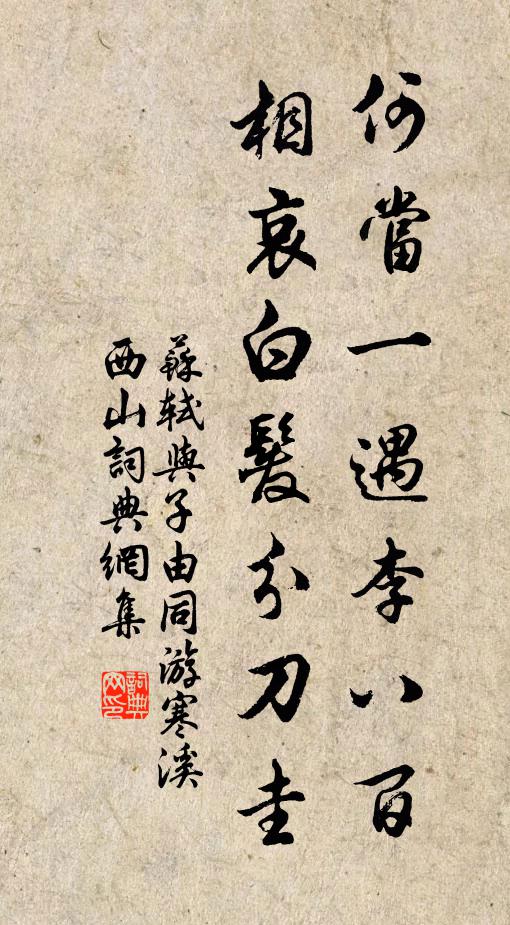 何當一遇李八百
相哀白髮分刀圭
蘇軾與子由同游寒溪
西山詞典網集
詞典
网印